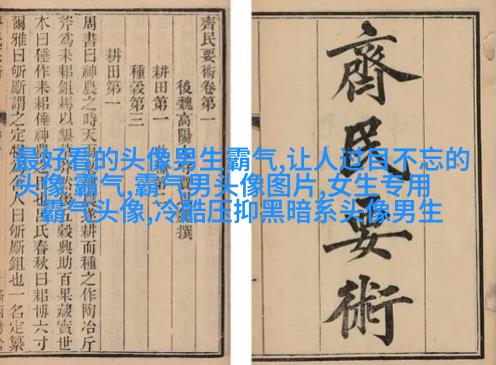 齊民要術
齊民要術卷第一
後魏高陽撰
耕田第一
種穀第三
耕田第一
周書曰神農之時天雨遂耕而種之作陶冶斤
斧爲耒耜鉏耨以墾穀興助百果藏實世
本曰倕作耒耜倕神農之呂氏春秋曰耜博六寸
爾雅曰斪斸謂之定人曰斪斸鉏也一名定纂
最好看的头像男生霸气,让人过目不忘的
头像,霸气,霸气男头像图片,女生专用
霸气头像,冷酷压抑黑暗系头像男生